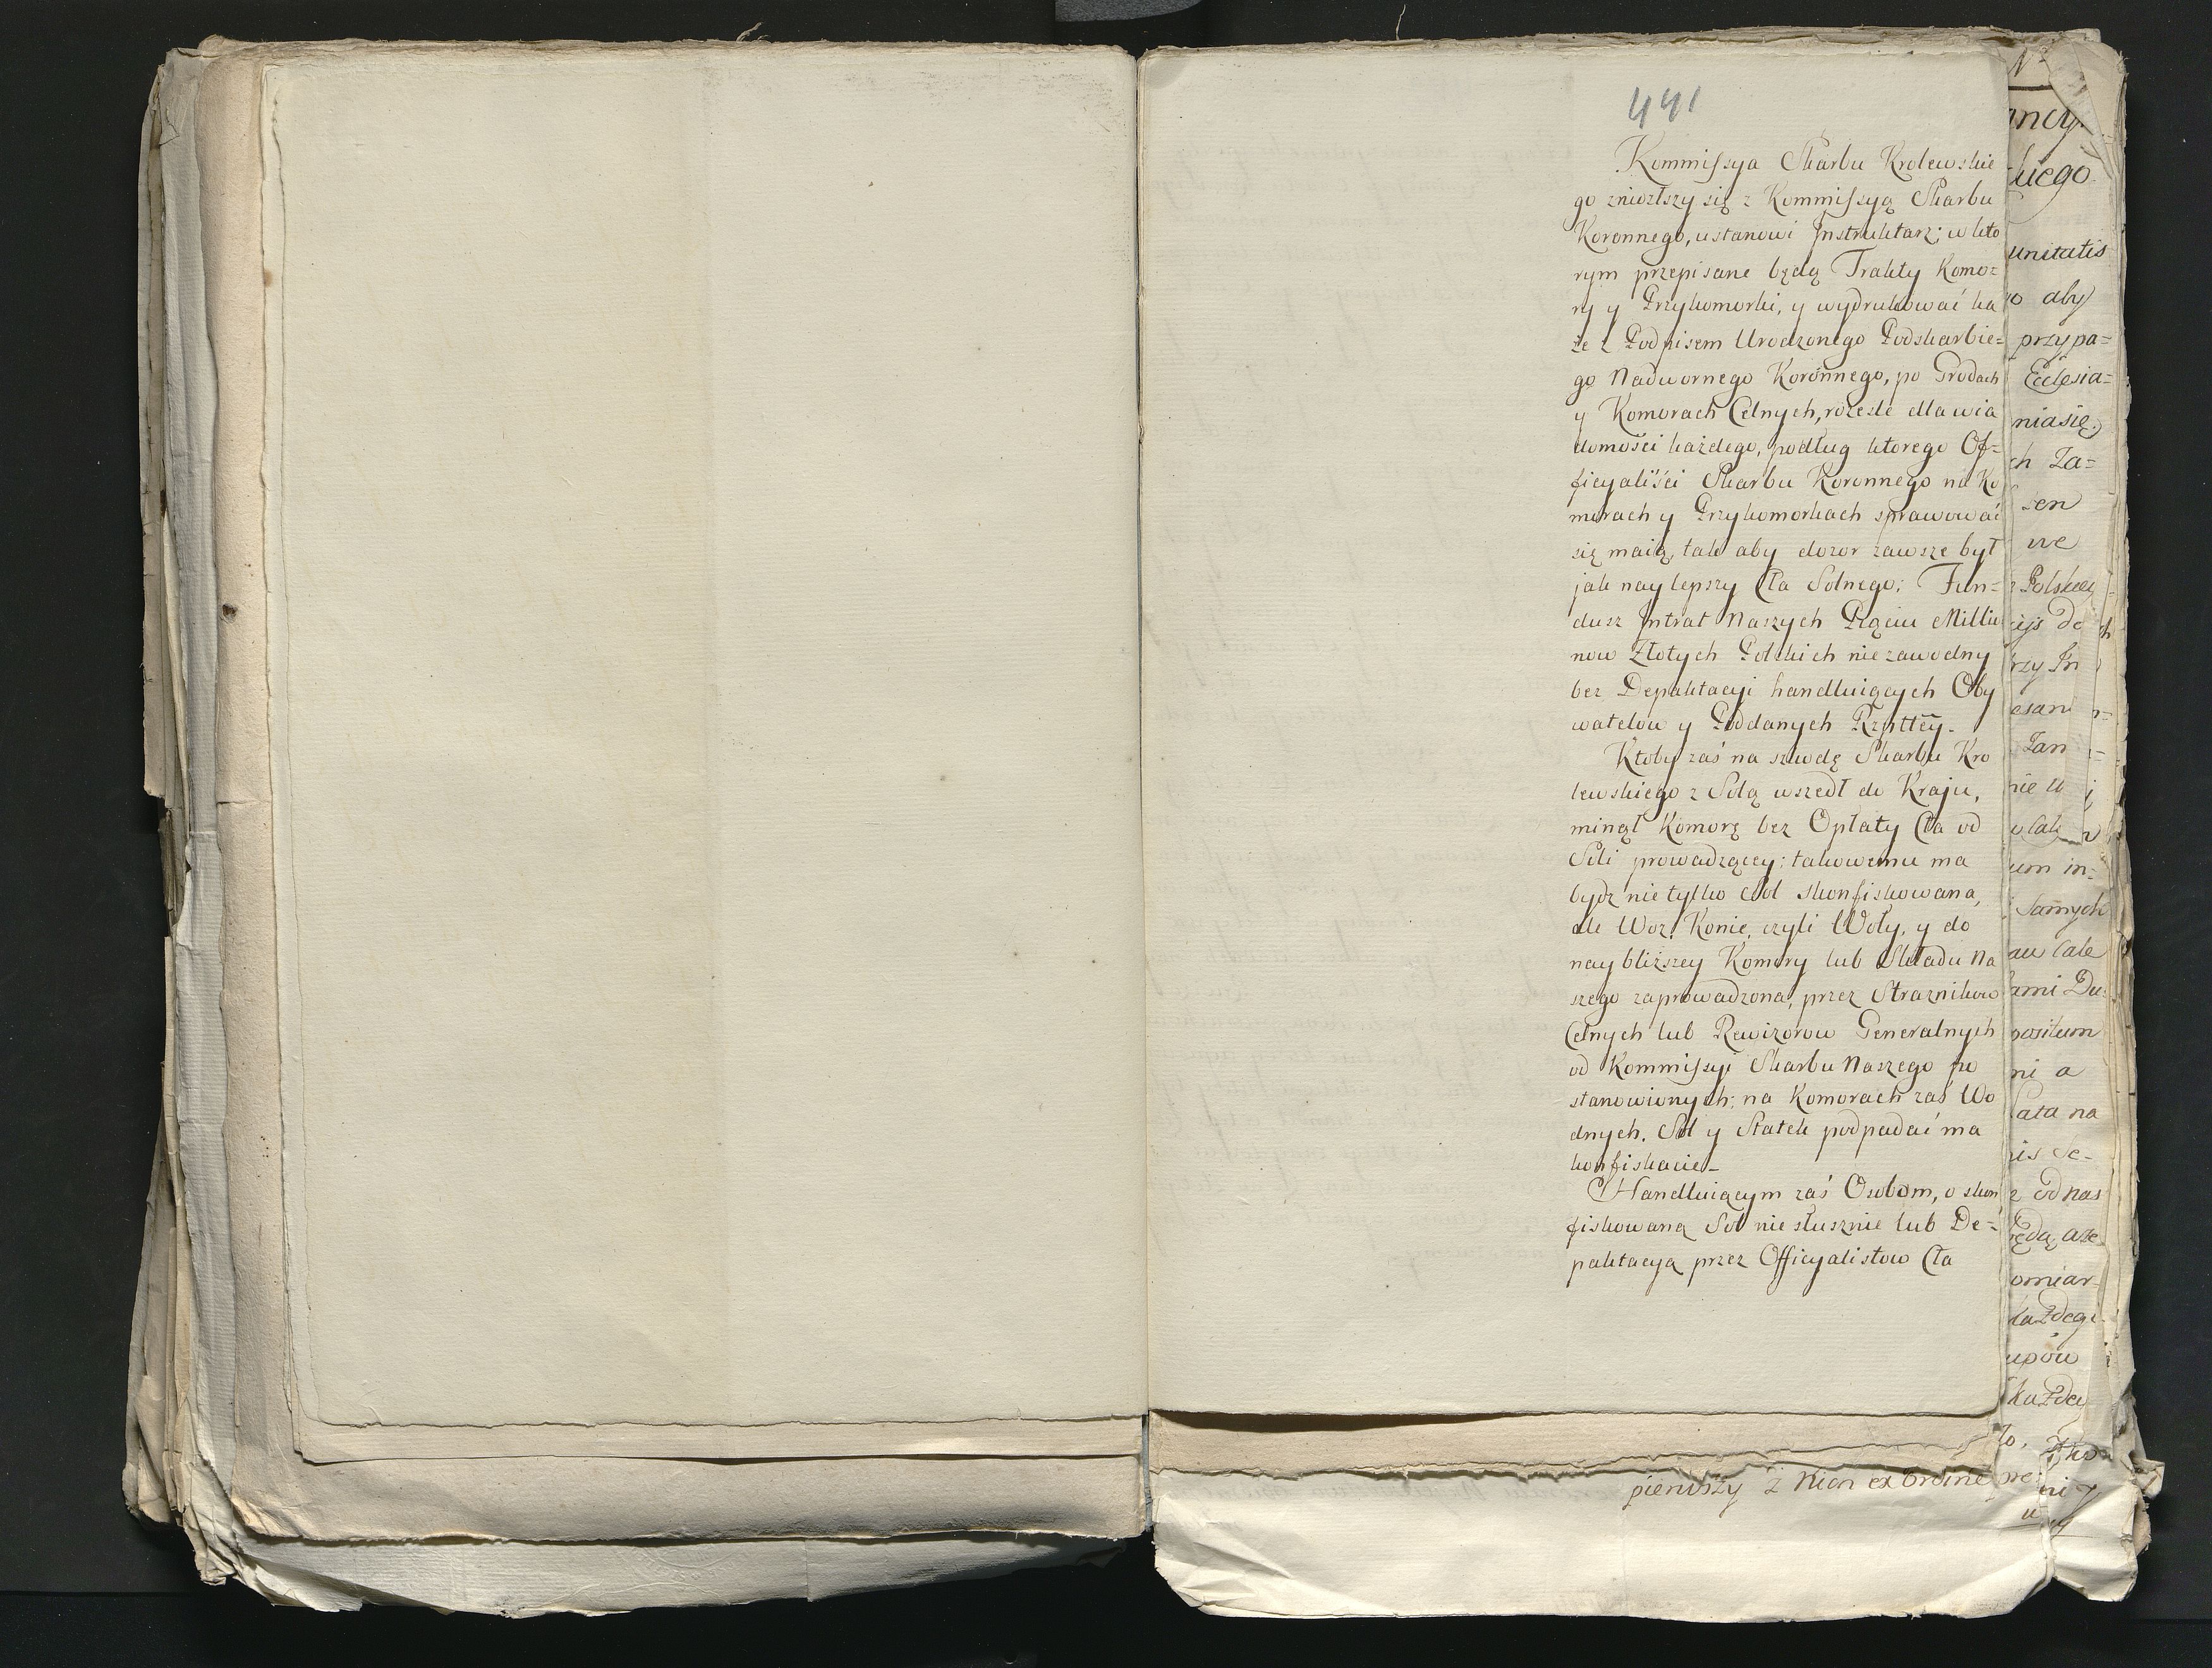 441
Kommissya Skarbu Krolewskie
go zniozłszy się z Kommissyą Skarbu
Koronnego, ustanowi Instruktarz; w kto
rym przepisane będą Trakty Komo=
ry y Przykomorki, y wydrukować ka
że z Podpisem Urodzonego Podskarbie=
go Nadwornego Koronnego, po Grodach
y Komorach Celnych, rozesle dla wia
domości każdego, podług ktorego Of=
ficyaliści Skarbu Koronnego na Ko
morach y Przykomorkach sprawować
się maią, tak aby dozor zawsze był
jak naylepszy Cła Solnego; Fun=
dusz Intrat Naszych Pięciu Millio
now Złotych Polskich niezawodny
bez Depaktacyi handluiących Oby
watelow y Poddanych Rzpttey.
Ktoby zaś na szkodę Skarbu Kro
lewskiego z Solą wszedł do Kraju,
minął Komorę bez Opłaty Cła od
Soli prowadzącey; takowemu ma
bydz nietylko Sol skonfiskowana,
ale Woz, Konie, czyli Woły, y do
naybliższey Komory lub Składu Na
szego zaprowadzona, przez Straznikow
Celnych lub Rewizorow Generalnych
od Kommissyi Skarbu Naszego po
stanowionych; na Komorach zaś Wo
dnych. Sol y Statek podpadać ma
konfiskacie_
Handluiącym zaś Osobom, o skon
fiskowaną Sol niesłusznie lub De=
paktacyą przez Officyalistow Cła
pierwszy z Nich ex Ordine
ancy.
kiego
unitatis
o aby
przypa=
Ecclesia=
nia się
ch Za=
sen
we
Polskiey
um in=
samych
au cale
ami Du=
positum
ni a
łata na
od nas
będą aże
omiar
każdego
upów
każdey